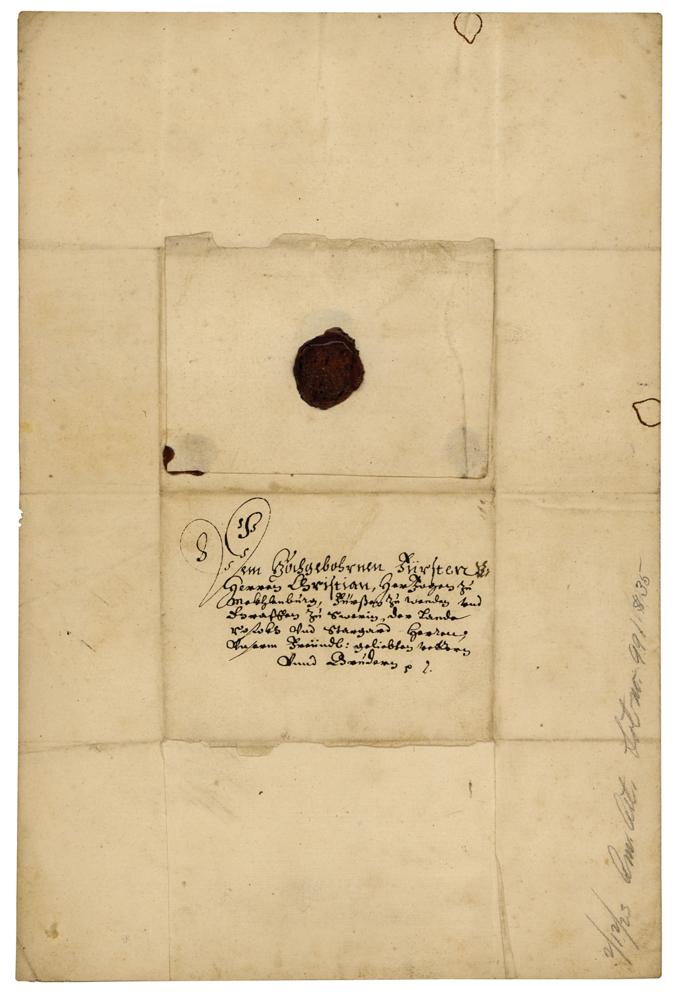 Dem Hochgebohrnen Fürsten
Herren Christian, Herzogen zu
Mekhlenburg, Fürsten zu wenden vnd
Graffen zu Swerin, der Lande
Rostok Vnd Stargard Herren,
Vnserm Freündl: geliebten vettern
Vnnd Brüdern p
2/12/23 Lot no. 991.8.35